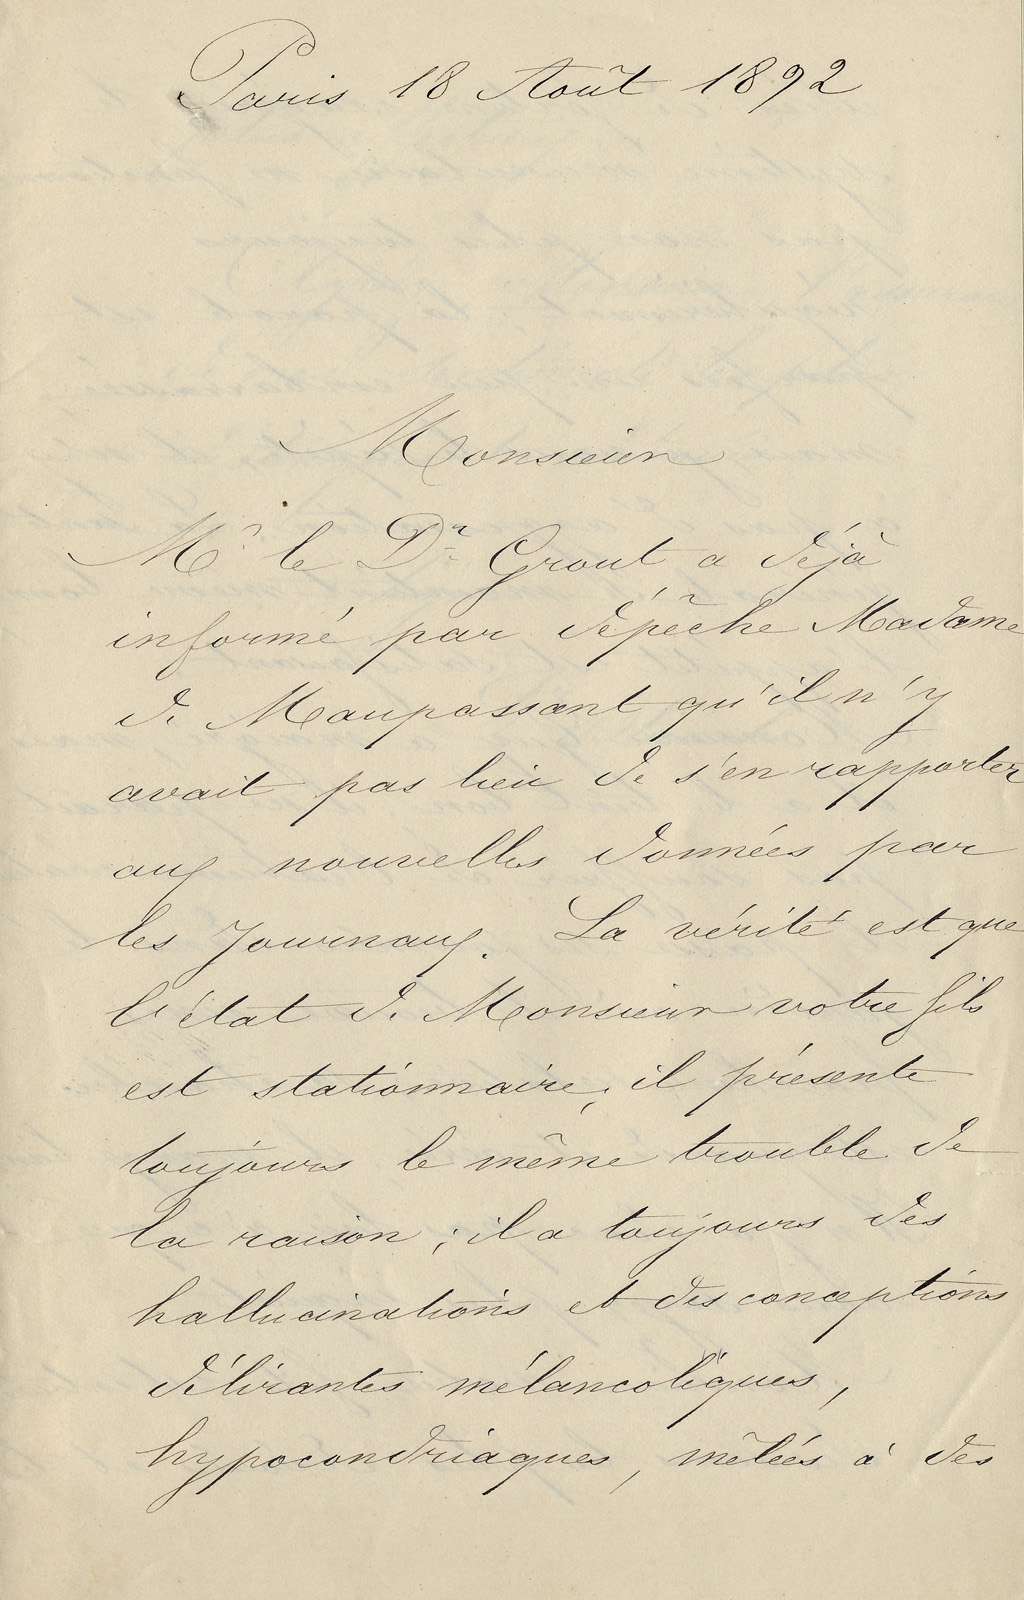 Paris 18 Août 1892
Monsieur
Mr. le Dr. Grout a déjà
informé par dépêche Madame
de Maupassant qu'il n'y
avait pas lieu de s'en rapporter
aux nouvelles données par
les Journaux. La vérité est que
l'état de Monsieur votre fils
est stationnaire; il présente
toujours le même trouble de
la raison ; il a toujours des
hallucinations et des conceptions
délirantes mélancoliques,
hypocondriaques, mêlées à des